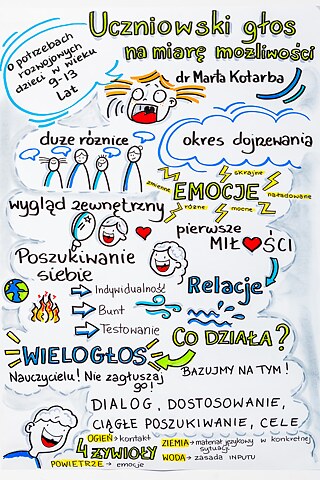 Uczniowski głos
na miarę możliwości
dr Marta Kotarba
o potrzebach
rozwojowych
dzieci w wieku
9-13
lat
duże różnice
okres dojrzewania
EMOCJE
zmienne
skrajne
naładowane
różne
mocne
wygląd zewnętrzny
pierwsze
MIŁOŚCI
Poszukiwanie
siebie
Indywidualność
Bunt
Testowanie
Relacje
WIELOGŁOS
Nauczycielu! Nie zagłuszaj
go!
CO DZIAŁA?
BAZUJMY NA TYM!
DIALOG, DOSTOSOWANIE,
CIĄGŁE POSZUKIWANIE, CELE
4 ŻYWIOŁY
OGIEŃ → kontakt
ZIEMIA → materiał językowy w konkretnej
sytuacji
POWIETRZE → emocje
WODA → zasada INPUTU